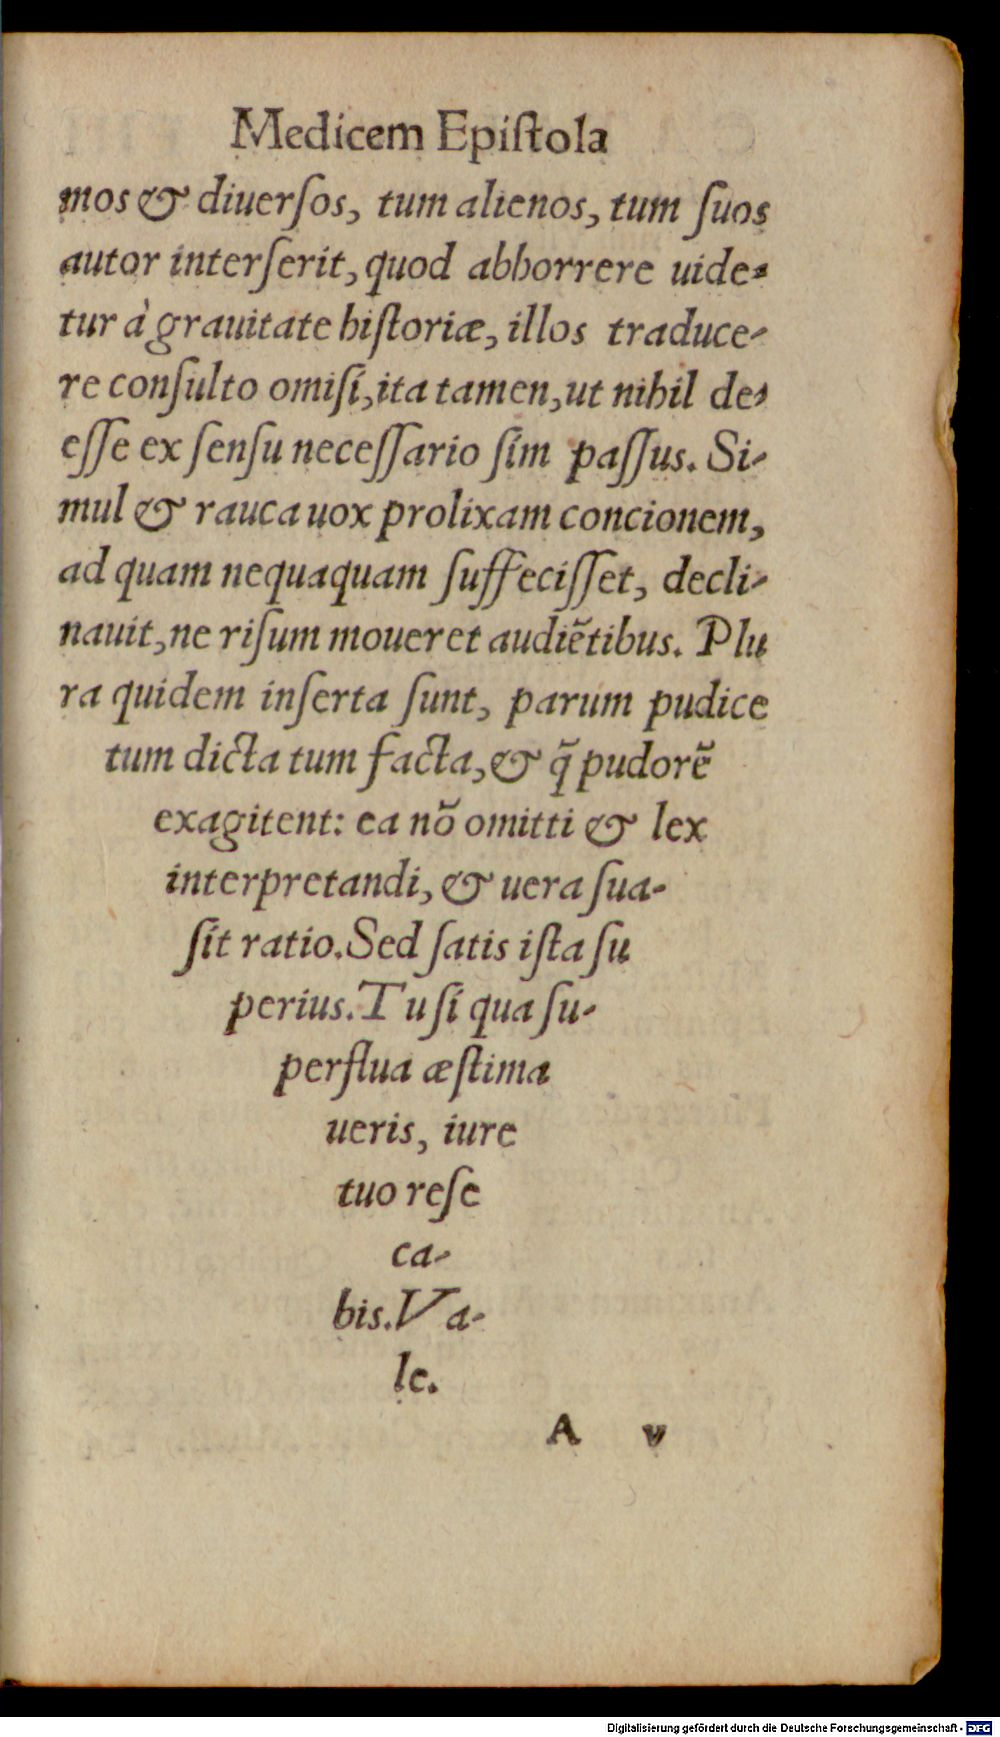 Medicem Epiſtola
mos & diuerſos, tum alienos, tum ſuos
autor interſerit, quod abhorrere uide-
tur à grauitate hiſtoriæ, illos traduce-
re conſulto omiſi, ita tamen, ut nihil de-
eſſe ex ſenſu neceſſario ſim paſſus. Si-
mul & rauca uox prolixam concionem,
ad quam nequaquam ſuffeciſſet, decli-
nauit, ne riſum moueret audiẽtibus. Plu
ra quidem inſerta ſunt, parum pudice
tum dicta tum facta, & q̃ pudorẽ
exagitent: ea nõ omitti & lex
interpretandi, & uera ſua-
ſit ratio. Sed ſatis iſta ſu
perius. Tu ſi qua ſu-
perflua æſtima
ueris, iure
tuo reſe
ca-
bis. Va-
le.
A v
Digitalisierung gefördert durch die Deutsche Forschungsgemeinschaft - DFG